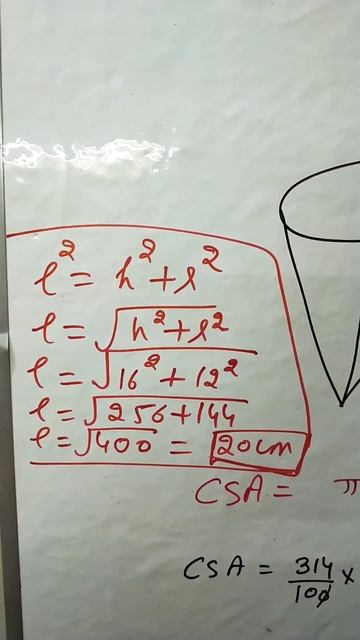 l² = h² + r²
l = √h² + r²
l = √16² + 12²
l = √256 + 144
l = √400 = 20cm
CSA = π
CSA = 314/100 ×